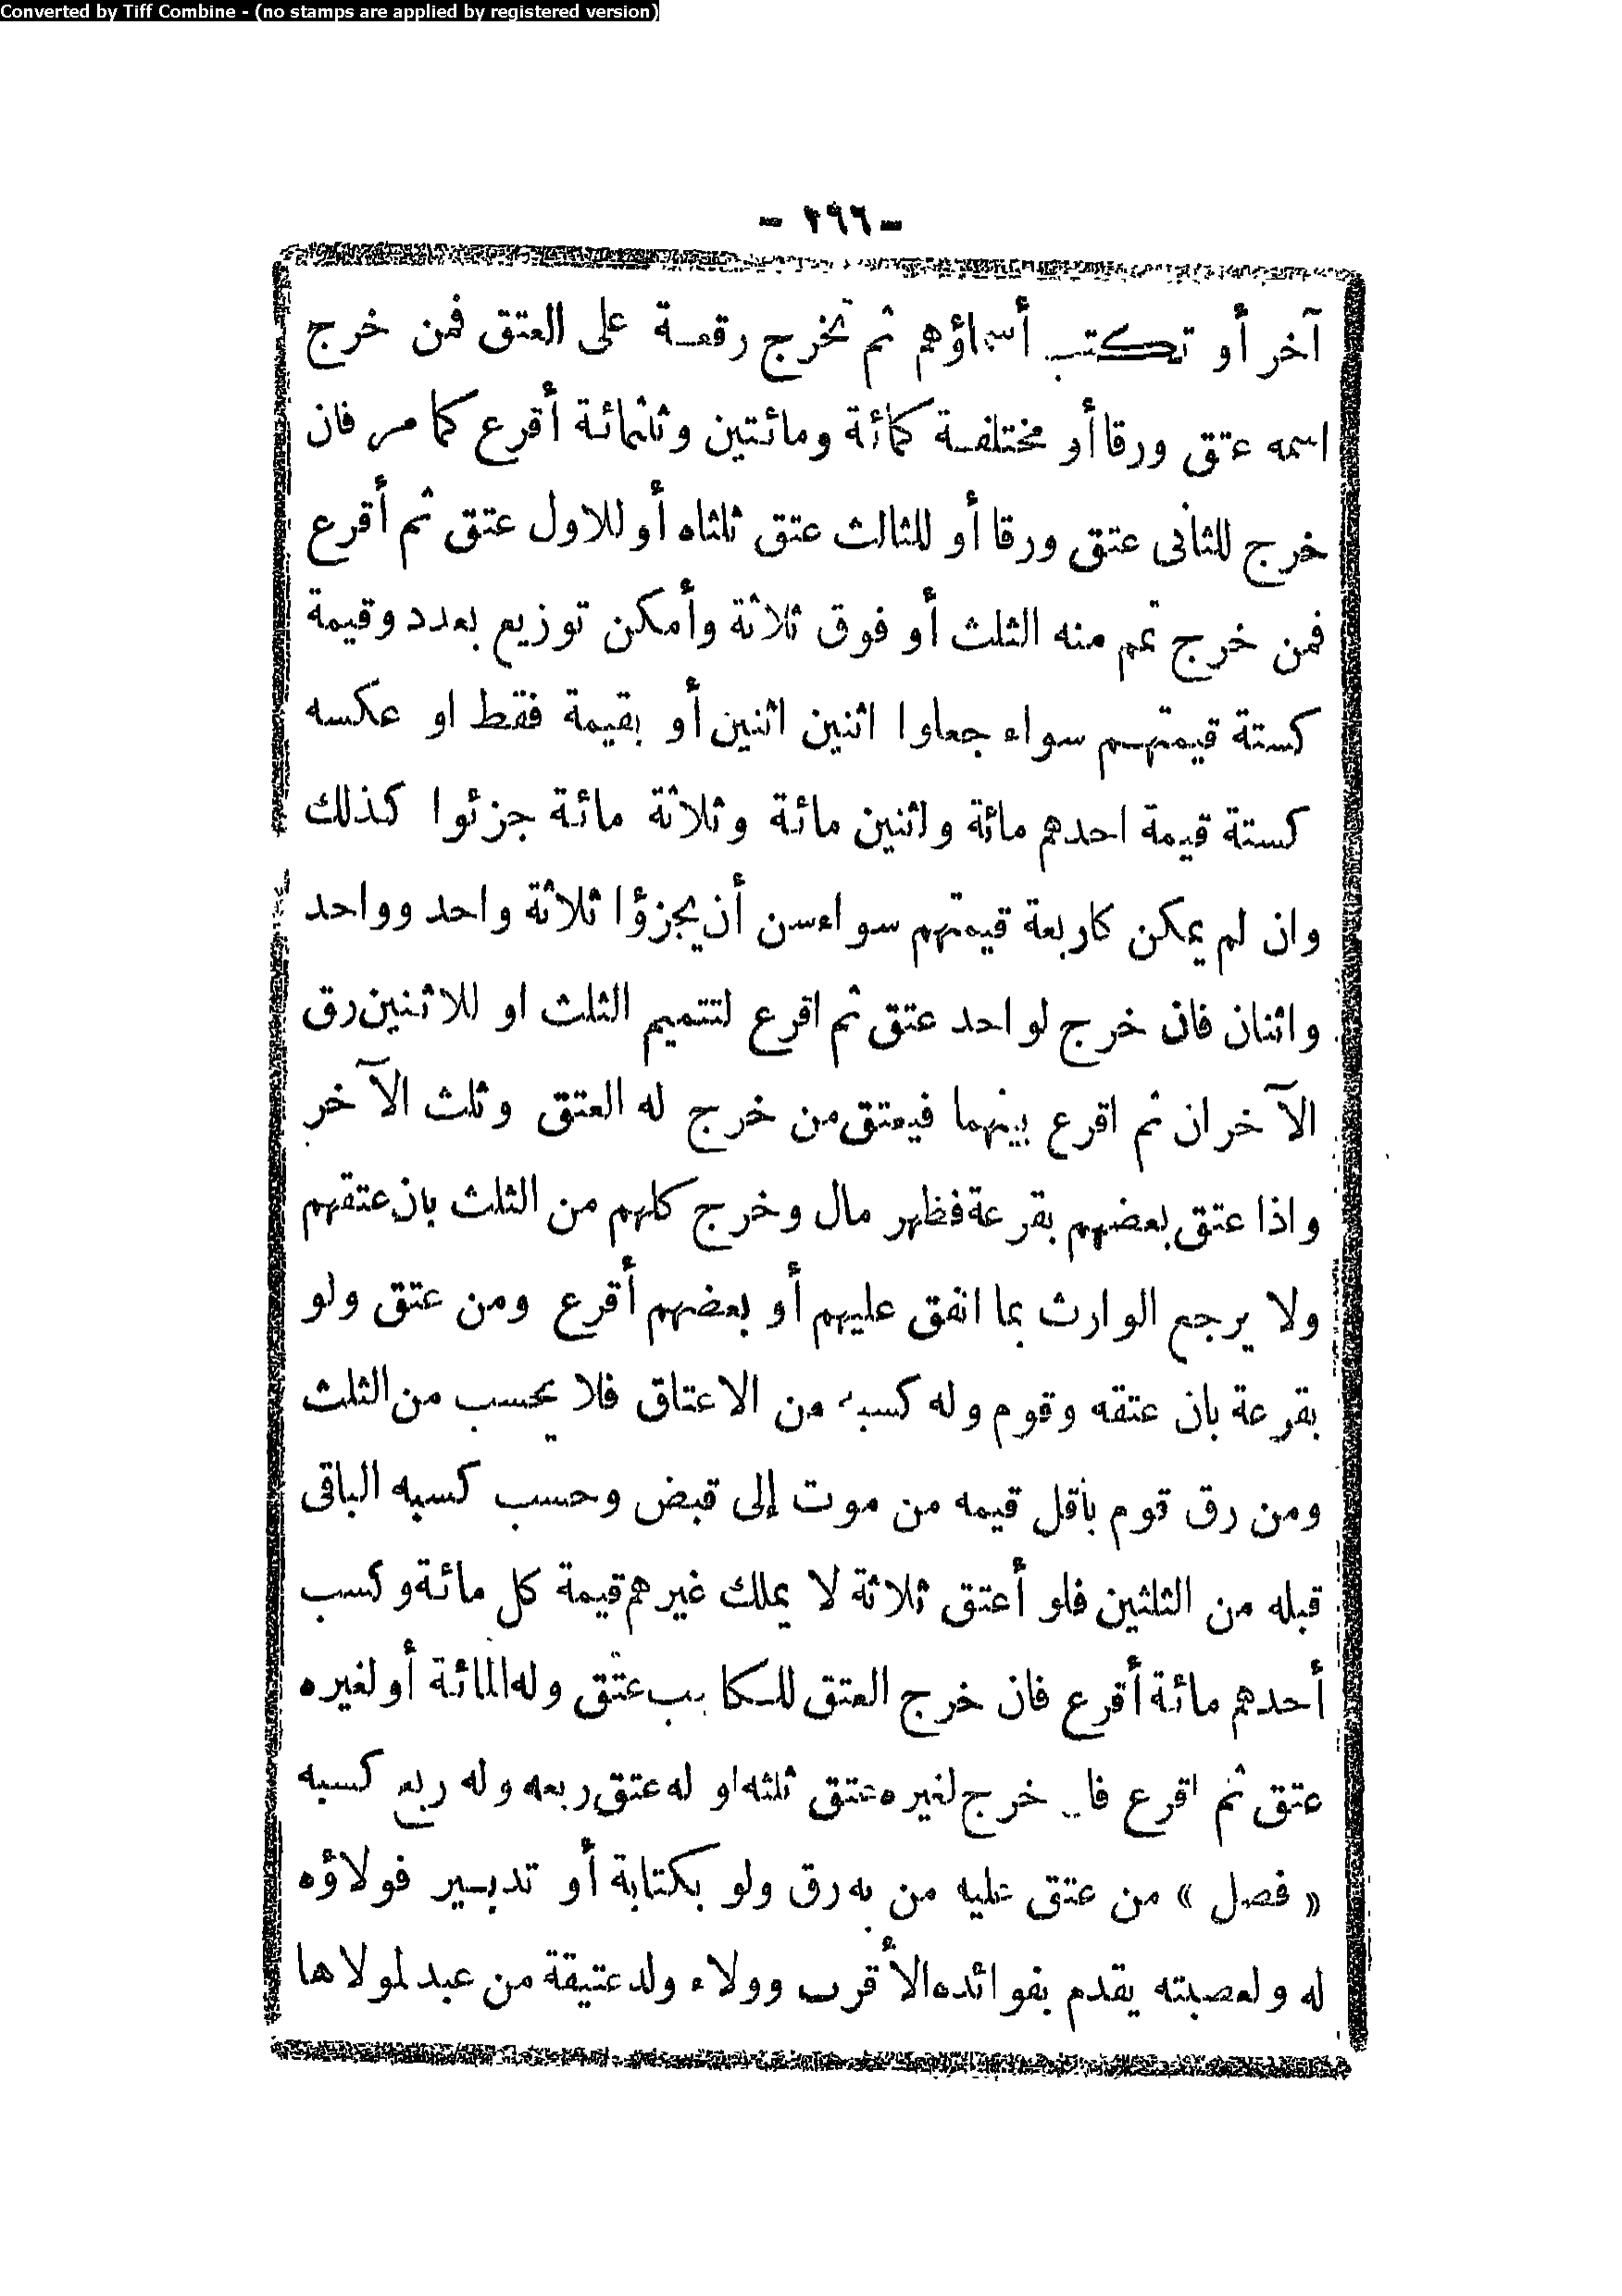 Converted by Tiff Combine - (no stamps are applied by registered version)
- ٢٩٦ -
آخر أو تكتب أسماؤهم ثم تخرج رقعة على العتق فمن خرج
اسمه عتق ورقا أو مختلفة كمائة ومائتين وثلثمائة أقرع كما مر فان
خرج للثانى عتق ورقا أو للثالث عتق ثلثاه أو للاول عتق ثم أقرع
فمن خرج تمم منه الثلث أو فوق ثلاثة وأمكن توزيع بعدد وقيمة
كستة قيمتهم سواء جعلوا اثنين اثنين أو بقيمة فقط او عكسه
كستة قيمة احدهم مائة واثنين مائة وثلاثة مائة جزئوا كذلك
وان لم يمكن كاربعة قيمتهم سواء سن أن يجزؤا ثلاثة واحد وواحد
واثنان فان خرج لواحد عتق ثم اقرع لتتميم الثلث او للاثنين رق
الآخران ثم اقرع بينهما فيعتق من خرج له العتق وثلث الآخر
واذا عتق بعضهم بقرعة فظهر مال وخرج كلهم من الثلث بان عتقهم
ولا يرجع الوارث بما انفق عليهم أو بعضهم أقرع ومن عتق ولو
بقرعة بان عتقه وقوم وله كسبه من الاعتاق فلا يحسب من الثلث
ومن رق قوم بأقل قيمه من موت إلى قبض وحسب كسبه الباقى
قبله من الثلثين فلو أعتق ثلاثة لا يملك غيرهم قيمة كل مائة وكسب
أحدهم مائة أقرع فان خرج العتق للكاسب عتق وله المائة أو لغيره
عتق ثم اقرع فان خرج لغيره عتق ثلثه او له عتق ربعه وله ربع كسبه
« فصل » من عتق عليه من به رق ولو بكتابة أو تدبير فولاؤه
له ولعصبته يقدم بفوائده الأقرب وولاء ولد عتيقة من عبد لمولاها